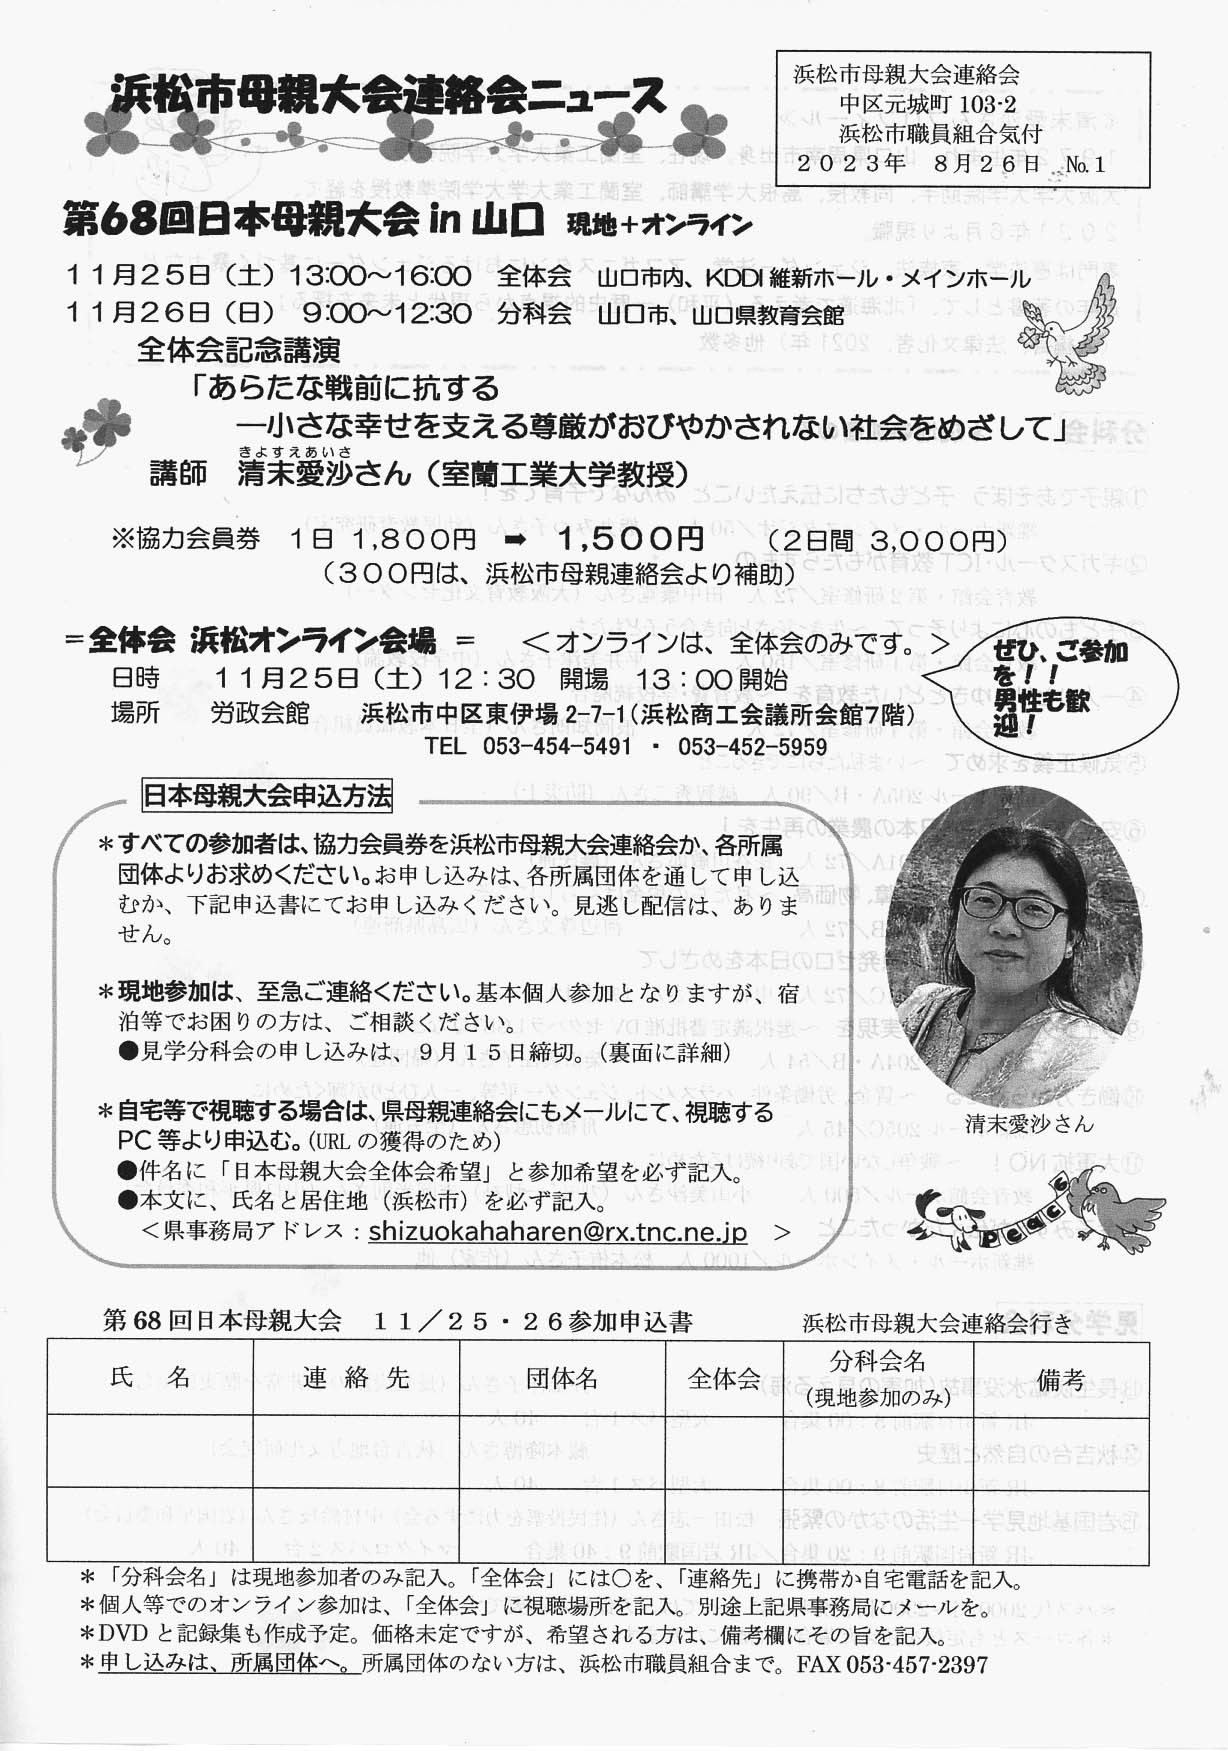 浜松市母親大会連絡会ニュース
浜松市母親大会連絡会
中区元城町 103-2
浜松市職員組合気付
２０２３年　８月２６日　№１
第68回日本母親大会 in 山口　現地＋オンライン
１１月２５日（土）13:00～16:00　全体会　山口市内、KDDI維新ホール・メインホール
１１月２６日（日）　9:00～12:30　分科会　山口市、山口県教育会館
全体会記念講演
「あらたな戦前に抗する
―小さな幸せを支える尊厳がおびやかされない社会をめざして」
きよすえあいさ
講師　清末愛沙さん（室蘭工業大学教授）
※協力会員券　１日　１,８００円　➡　１,５００円　（２日間　３,０００円）
（３００円は、浜松市母親連絡会より補助）
＝全体会 浜松オンライン会場　＝　＜オンラインは、全体会のみです。＞
ぜひ、ご参加
を！！
男性も歓
迎！
日時　１１月２５日（土）１２：３０　開場　１３：００開始
場所　労政会館　浜松市中区東伊場 2-7-1(浜松商工会議所会館７階)
TEL　053-454-5491　・　053-452-5959
日本母親大会申込方法
＊すべての参加者は、協力会員券を浜松市母親大会連絡会か、各所属
団体よりお求めください。お申し込みは、各所属団体を通して申し込
むか、下記申込書にてお申し込みください。見逃し配信は、ありま
せん。
＊現地参加は、至急ご連絡ください。基本個人参加となりますが、宿
泊等でお困りの方は、ご相談ください。
●見学分科会の申し込みは、９月１５日締切。（裏面に詳細）
＊自宅等で視聴する場合は、県母親連絡会にもメールにて、視聴する
PC 等より申込む。（URL の獲得のため）
●件名に「日本母親大会全体会希望」と参加希望を必ず記入。
●本文に、氏名と居住地（浜松市）を必ず記入。
＜県事務局アドレス：shizuokahaharen@rx.tnc.ne.jp　＞
清末愛沙さん
第 68 回日本母親大会　１１／２５・２６参加申込書　浜松市母親大会連絡会行き
氏　名　連 絡 先　団体名　全体会　分科会名　備考
（現地参加のみ）
＊「分科会名」は現地参加者のみ記入。「全体会」には○を、「連絡先」に携帯か自宅電話を記入。
＊個人等でのオンライン参加は、「全体会」に視聴場所を記入。別途上記県事務局にメールを。
＊DVD と記録集も作成予定。価格未定ですが、希望される方は、備考欄にその旨を記入。
＊申し込みは、所属団体へ。所属団体のない方は、浜松市職員組合まで。FAX 053-457-2397